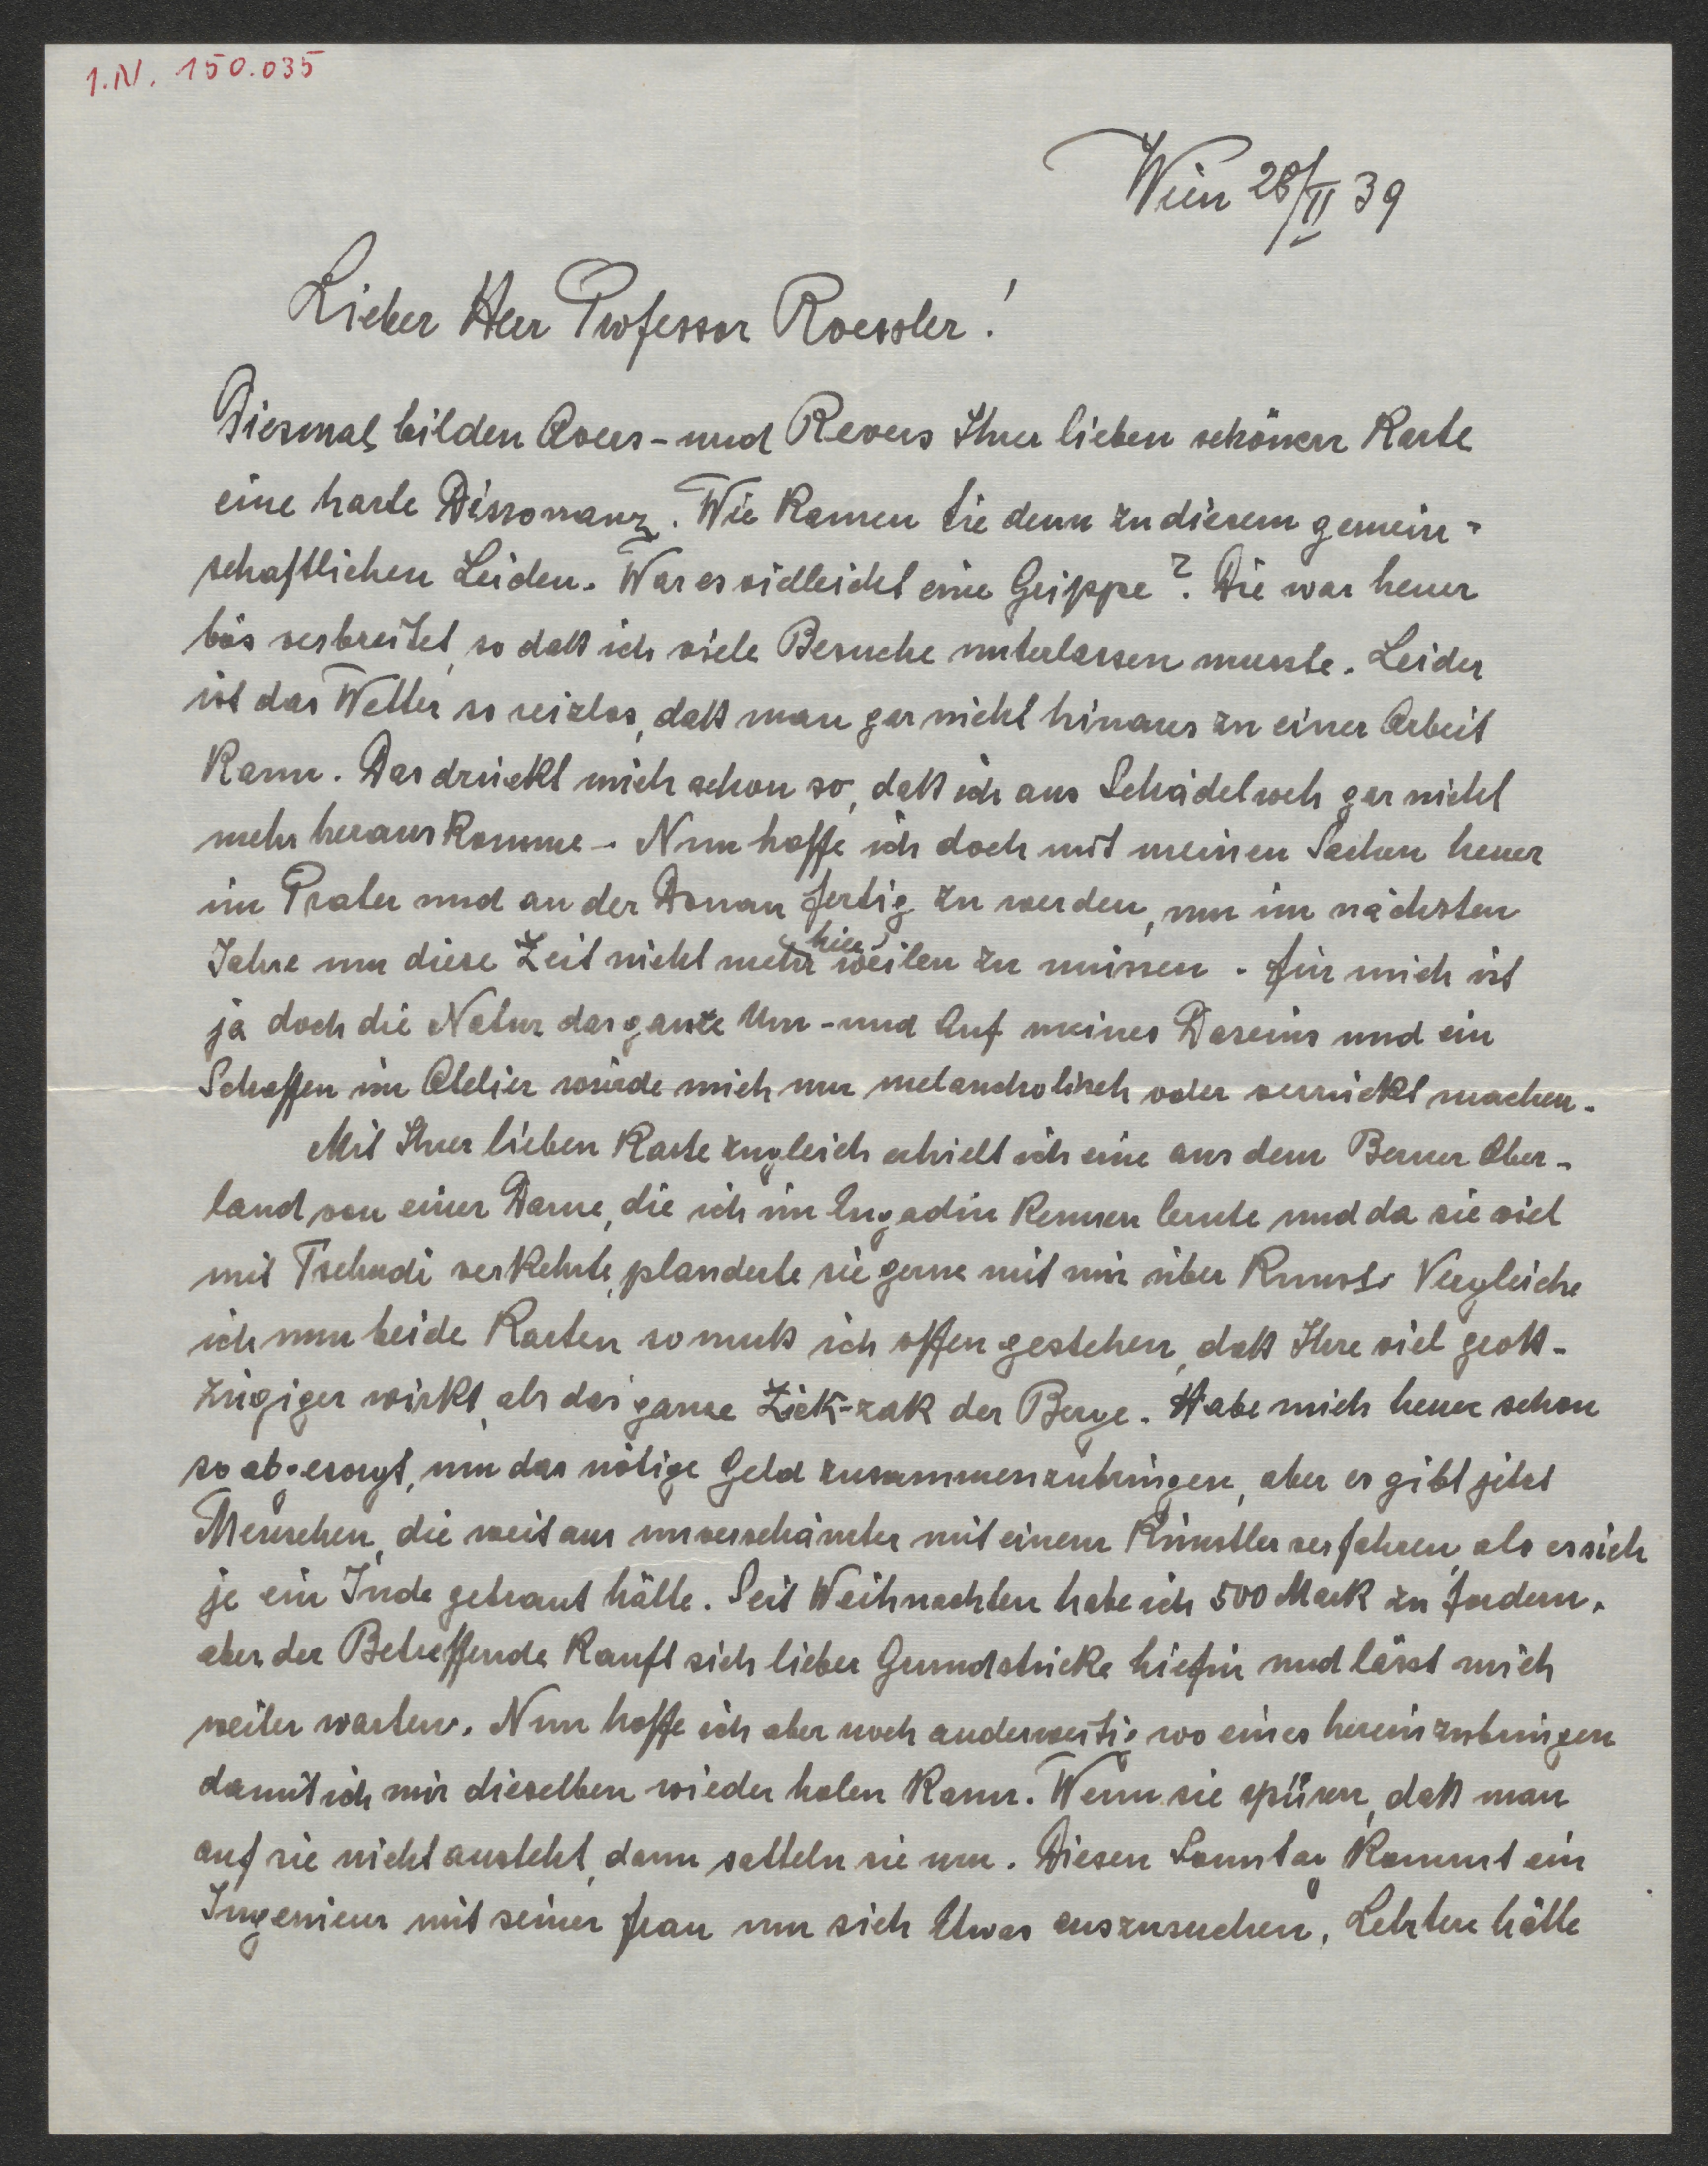 I.N. 150.035
Wien 28/II 39
Lieber Herr Professor Roessler!
Diesmal bilden Avers- und Revers Ihrer lieben schönen Karte
eine harte Dissonanz. Wie kamen Sie denn zu diesem gemein-
schaftlichen Leiden. War es vielleicht eine Grippe? Die war heuer
bös verbreitet, so daß ich viele Besuche unterlassen musste. Leider
ist das Wetter so reizlos, daß man gar nicht hinaus zu einer Arbeit
kann. Das drückt mich schon so, daß ich aus Schädelweh gar nicht
mehr herauskomme. Nun hoffe ich doch mit meinen Sachen heuer
im Prater und an der Donau fertig zu werden, um im nächsten
Jahre um diese Zeit nicht mehr hier weilen zu müssen. Für mich ist
ja doch die Natur das ganze Um- und Auf meines Daseins und ein
Schaffen im Atelier würde mich nur melancholisch oder verrückt machen.
Mit Ihrer lieben Karte zugleich erhielt ich eine aus dem Berner Ober-
land von einer Dame, die ich im Engadin kennen lernte und da sie viel
mit Tschudi verkehrte, plauderte sie gerne mit mir über Kunst. Vergleiche
ich nun beide Karten so muß ich offen gestehen, daß Ihre viel groß-
zügiger wirkt, als das ganze Zick-zak der Berge. Habe mich heuer schon
so abgesorgt, um das nötige Geld zusammenzubringen, aber es gibt jetzt
Menschen, die weitaus unverschämter mit einem Künstler verfahren, als es sich
je ein Jude getraut hätte. Seit Weihnachten habe ich 500 Mark zu fordern,
aber der Betreffende kauft sich lieber Grundstücke hiefür und lässt mich
weiter warten. Nun hoffe ich aber noch anderweitig wo eines hereinzubringen
damit ich mir dieselben wieder holen kann. Wenn sie spüren, daß man
auf sie nicht ansteht, dann satteln sie um. Diesen Sonntag kommt ein
Ingenieur mit seiner Frau um sich Etwas auszusuchen, Letztere hätte